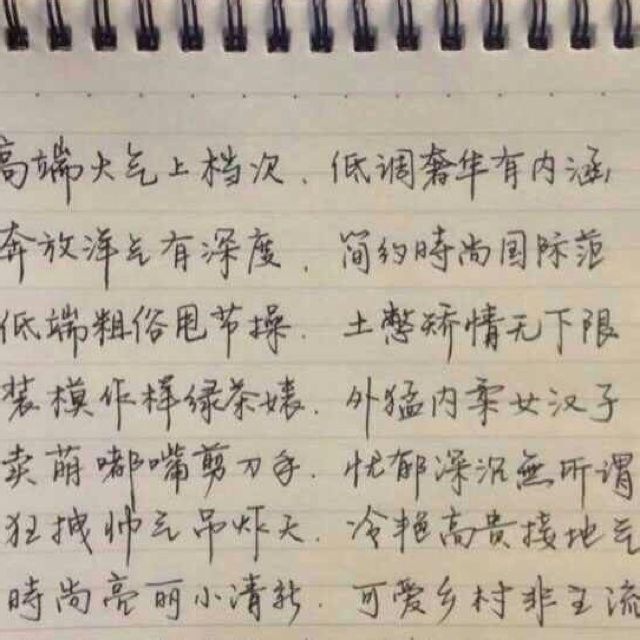 高端大气上档次，低调奢华有内涵
奔放洋气有深度，简约時尚国际范
低端粗俗甩节操，土憋矫情无下限
装模作样绿茶婊，外猛内柔女汉子
卖萌嘟嘴剪刀手，忧郁深沉無所谓
狂拽帅气吊炸天，冷艳高贵接地气
時尚亮丽小清新，可爱乡村非主流